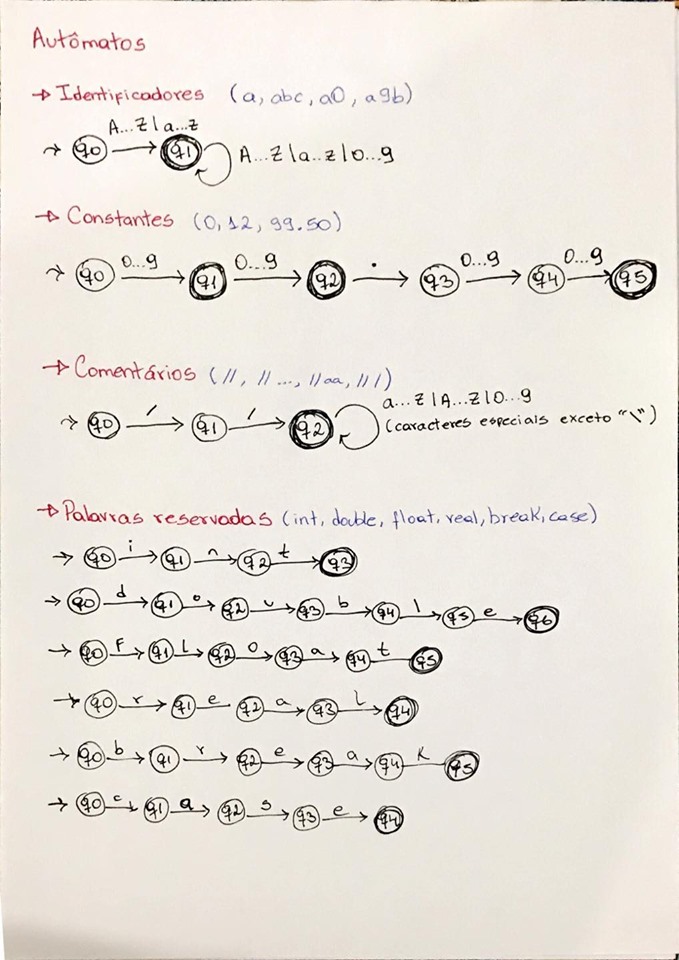 Autômatos
→ Identificadores (a, abc, a0, a9b)
A...Z|a...z
→ q0 → q1 A...Z|a...z|0...9
→ Constantes (0, 12, 99.50)
0...9 0...9 . 0...9 0...9
→ q0 → q1 → q2 → q3 → q4 → q5
→ Comentários (//, //..., //aa, ///)
a...z|A...Z|0...9
→ q0 / → q1 / → q2 (caracteres especiais exceto "\")
→ Palavras reservadas (int, double, float, real, break, case)
→ q0 i → q1 n → q2 t → q3
→ q0 d → q1 o → q2 u → q3 b → q4 l → q5 e → q6
→ q0 F → q1 l → q2 o → q3 a → q4 t → q5
→ q0 r → q1 e q2 a → q3 l → q4
→ q0 b → q1 r → q2 e → q3 a → q4 k q5
→ q0 c → q1 a → q2 s → q3 e → q4